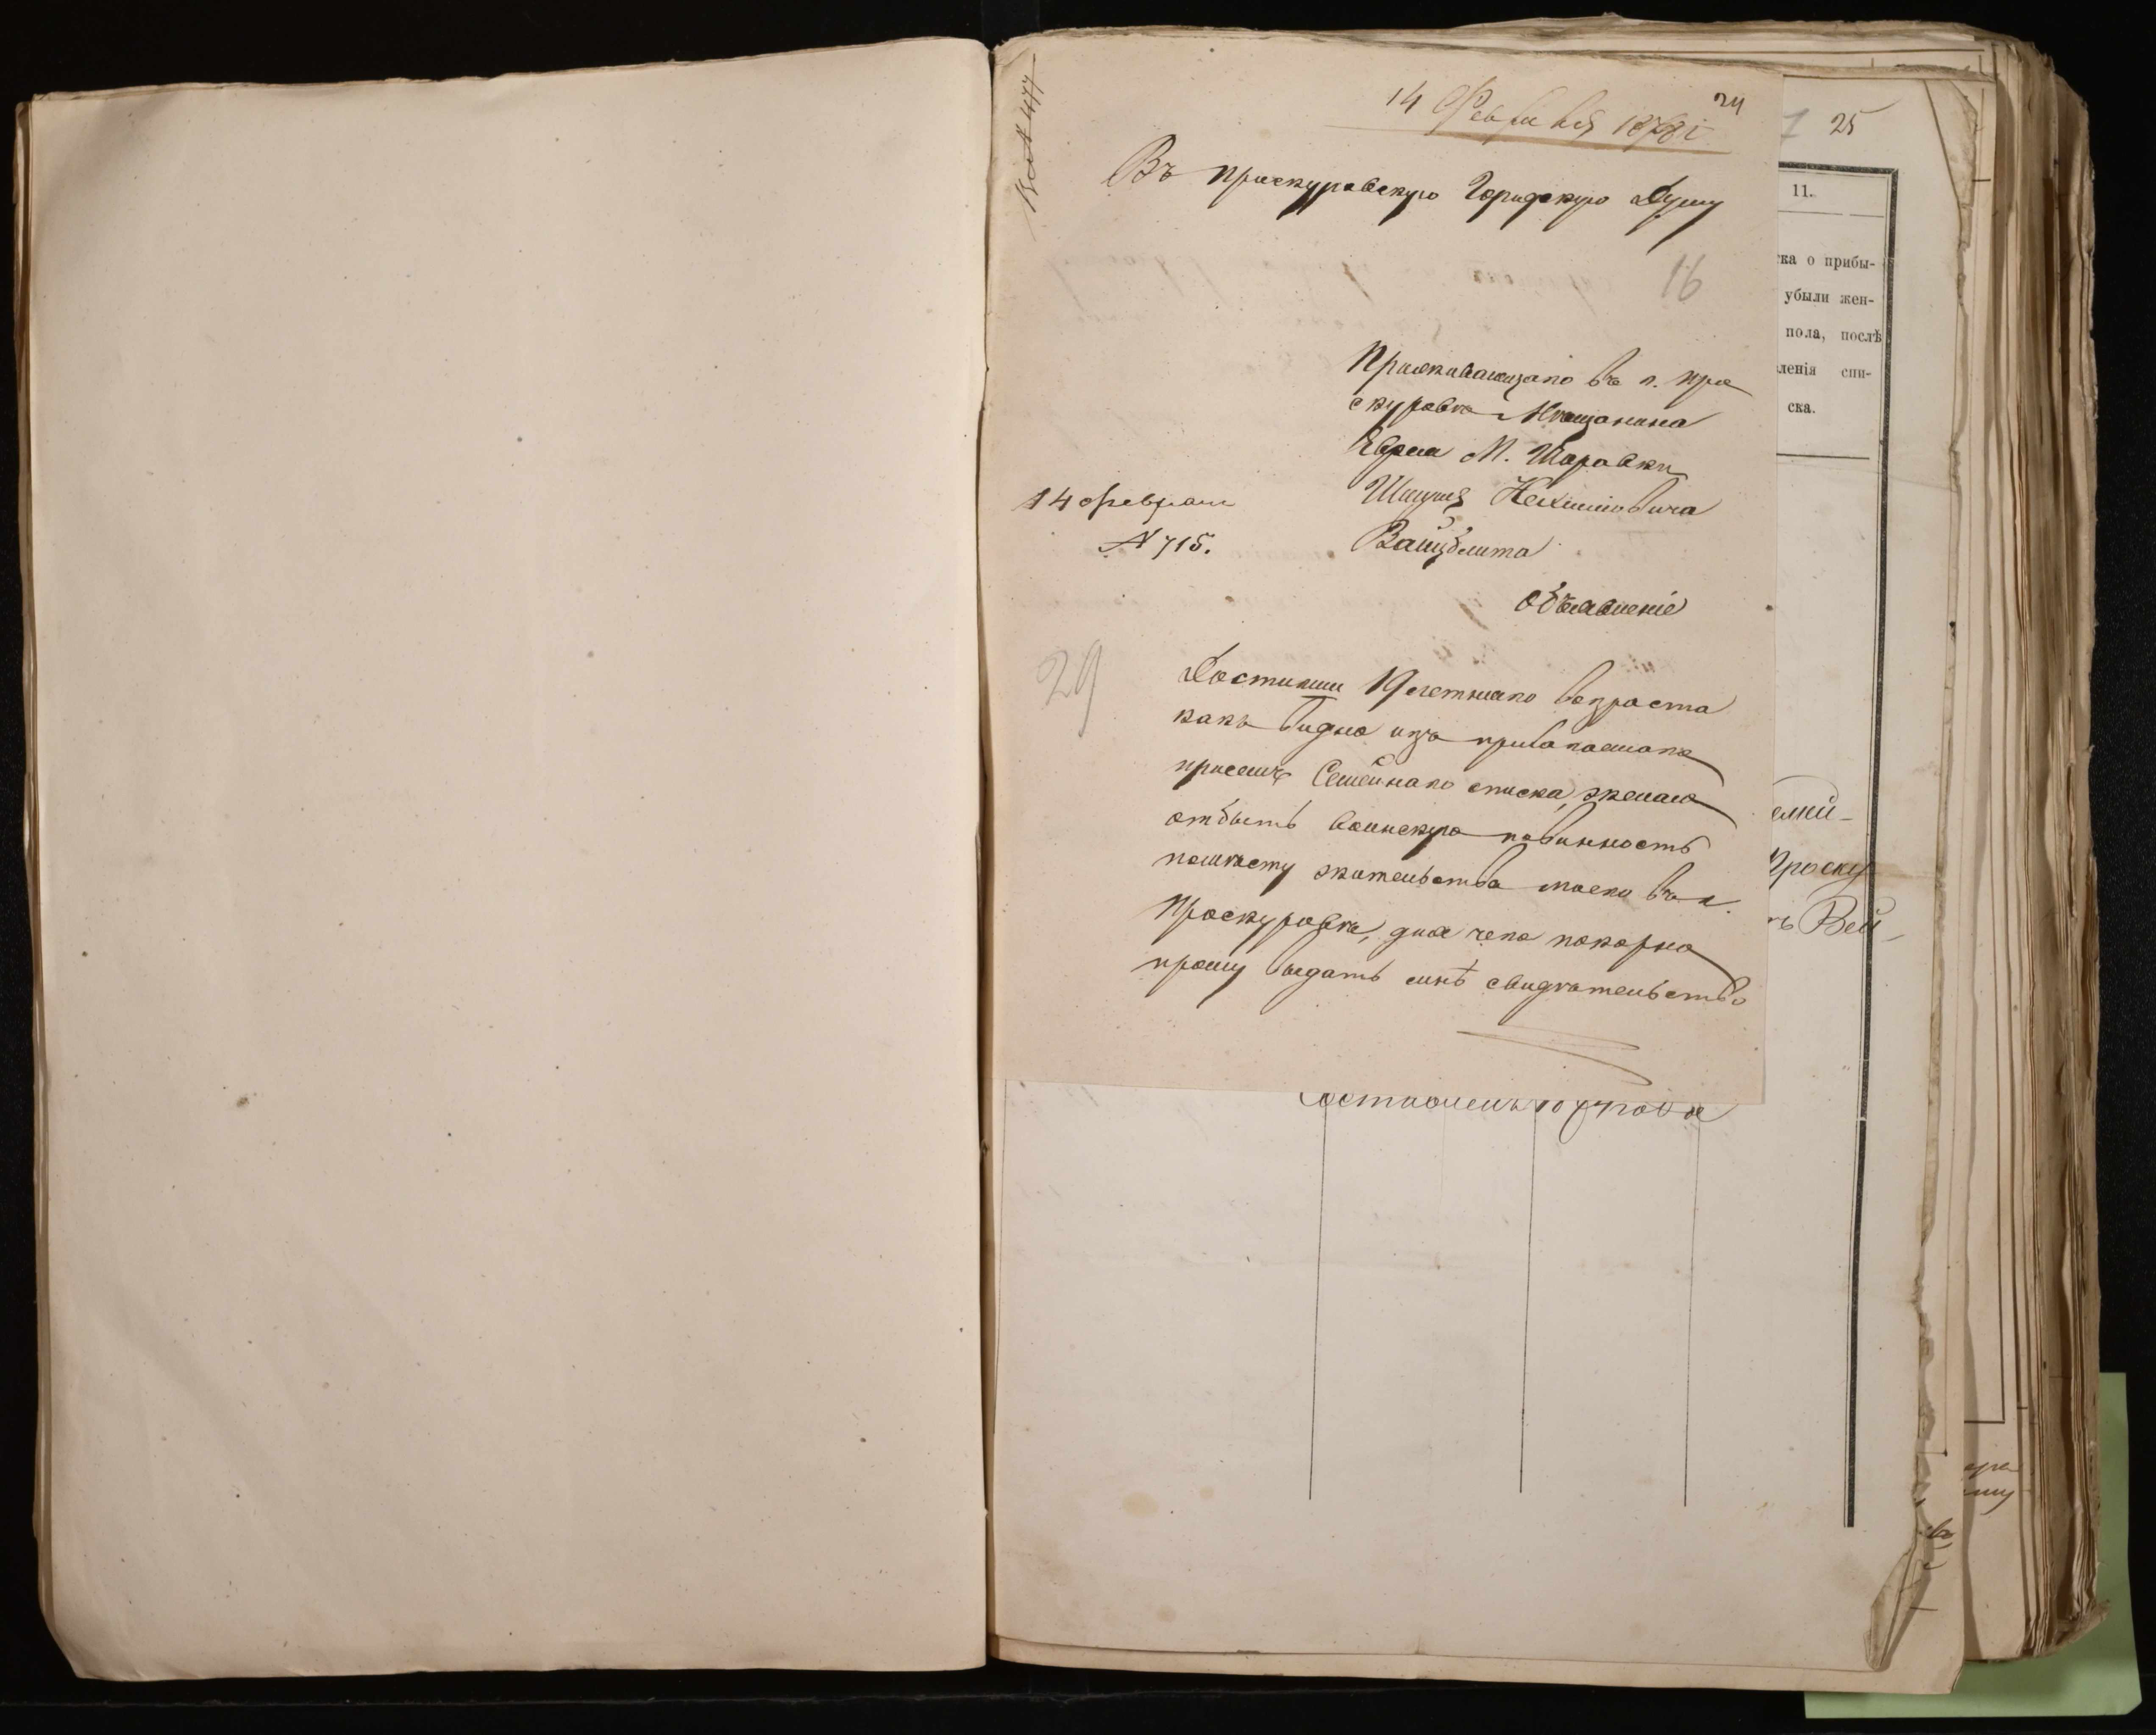 14 Февраля 1878 г.
24
Вх № 477
Въ Проскуровскую Городскую Думу
16
Проживающаго въ г. Про
скуровѣ Мѣщанина
Еврея М. Шаровки
Шмуля
14 Февраля
№ 715.
Объявленіе
29
Достигши 19 летняго возраста
какъ видно изъ прилагаемаго
присемъ Семейнаго списка, желаю
отбыть воинскую повинность
помѣсту жительства моего въ г.
Проскуровѣ, для чего покорно
прошу выдать мнѣ свидѣтельство
25
11.
ка о прибы-
убыли жен-
пола, послѣ
ленія спи-
ска.
Проску
Вей-